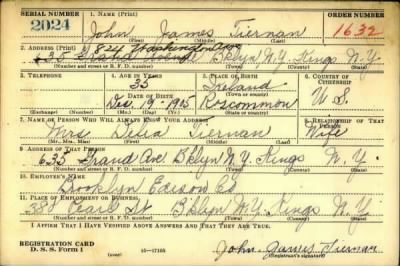 SERIAL NUMBER 1. NAME (Print) ORDER NUMBER
2024 John James Tiernan 1632
(First) (Middle) (Last)
2. ADDRESS (Print) 824 Washington Ave
635 Grand Avenue B'klyn N.Y. Kings N.Y.
(Number and street or R. F. D. number) (Town) (County) (State)
3. TELEPHONE 4. AGE IN YEARS 5. PLACE OF BIRTH 6. COUNTRY OF CITIZENSHIP
35 Ireland
DATE OF BIRTH (Town or county)
Dec. 19 - 1905 Roscommon U.S.
(Exchange) (Number) (Mo.) (Day) (Yr.) (State or country)
7. NAME OF PERSON WHO WILL ALWAYS KNOW YOUR ADDRESS 8. RELATIONSHIP OF THAT PERSON
Mrs. Delia Tiernan Wife
(Mr., Mrs., Miss) (First) (Middle) (Last)
9. ADDRESS OF THAT PERSON
635 Grand Ave B'klyn N.Y. Kings N.Y.
(Number and street or R. F. D. number) (Town) (County) (State)
10. EMPLOYER'S NAME
Brooklyn Edison Co
11. PLACE OF EMPLOYMENT OR BUSINESS
380 Pearl St B'klyn N.Y. Kings N.Y.
(Number and street or R. F. D. number) (Town) (County) (State)
I AFFIRM THAT I HAVE VERIFIED ABOVE ANSWERS AND THAT THEY ARE TRUE.
REGISTRATION CARD
D. S. S. Form 1 16-17105 John James Tiernan